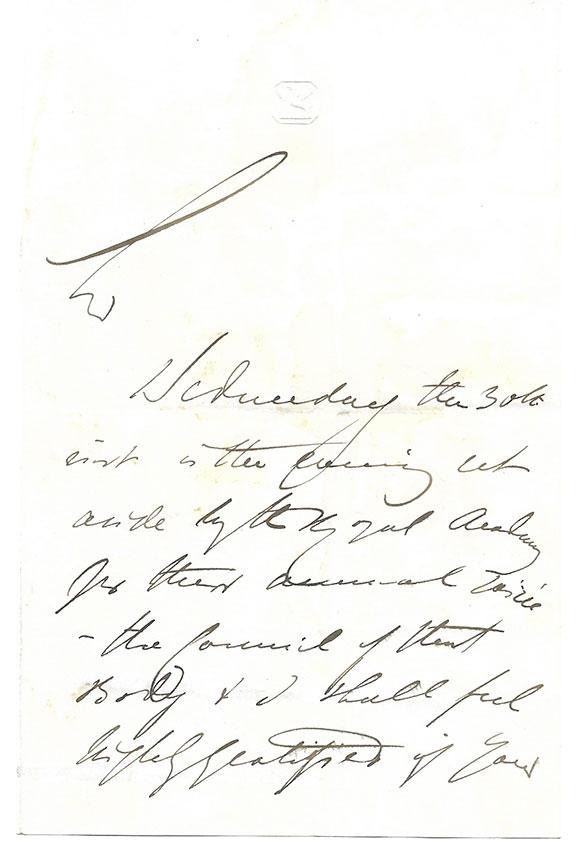 Sir
Wednesday the 30th
inst is the Evening set
aside by the Royal Academy
for their annual Soirée
- the Council of that
Body & I shall feel
highly gratified if Your